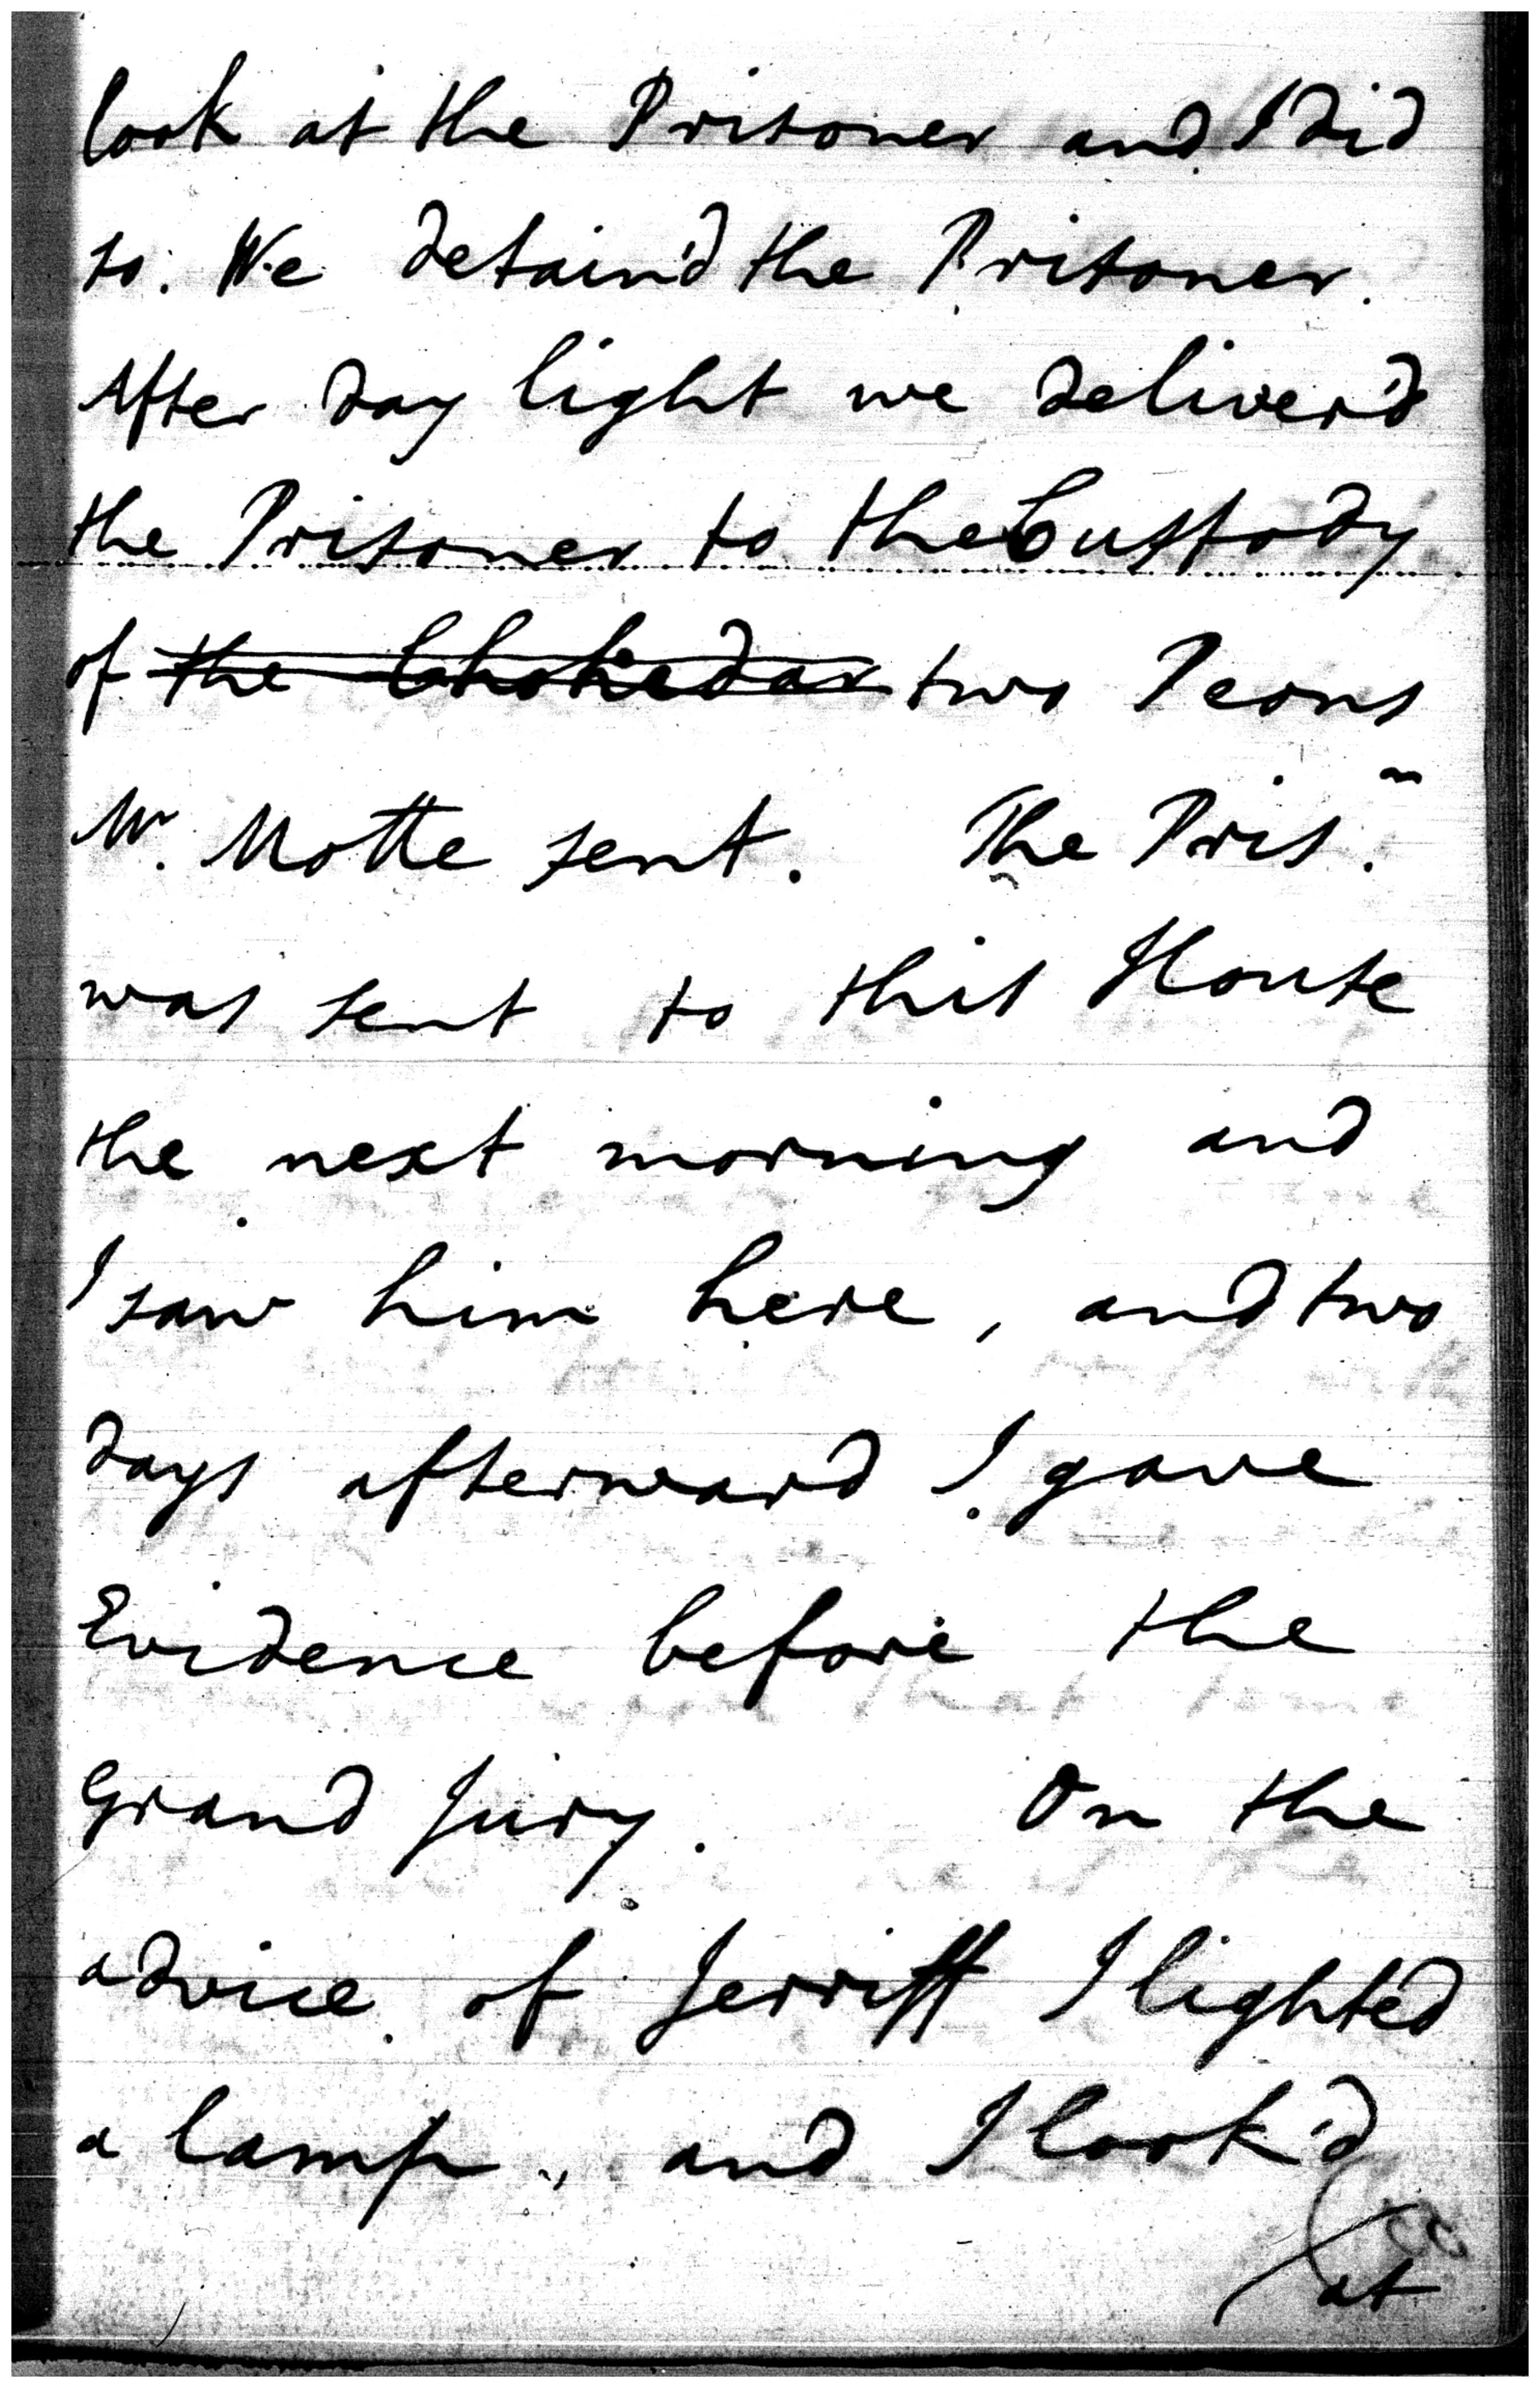 look at the Prisoner and I did
so. We detain'd the Prisoner.
After day light we deliver'd
the Prisoner to the Custody
of the Chokiedar two Peons
Mr. Motte sent. The Pris.n
was sent to this House
the next morning and
I saw him here, and two
days afterward I gave
Evidence before the
Grand Jury. On the
advice of Jerriff I lighted
a lamp, and I look'd
at